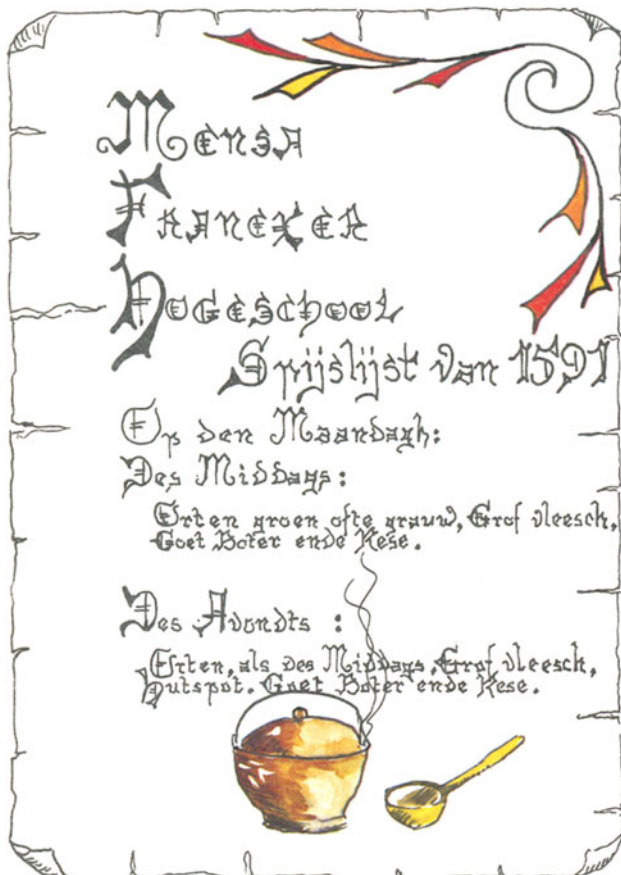 Mensa
Franeker
Hogeschool
Spijslijst van 1591
Op den Maandagh:
Des Middags:
Erten groen ofte grauw, Grof vleesch,
Goet Boter ende Kese.
Des Avondts :
Erten, als des Middags, Grof vleesch,
Hutspot. Goet Boter ende Kese.